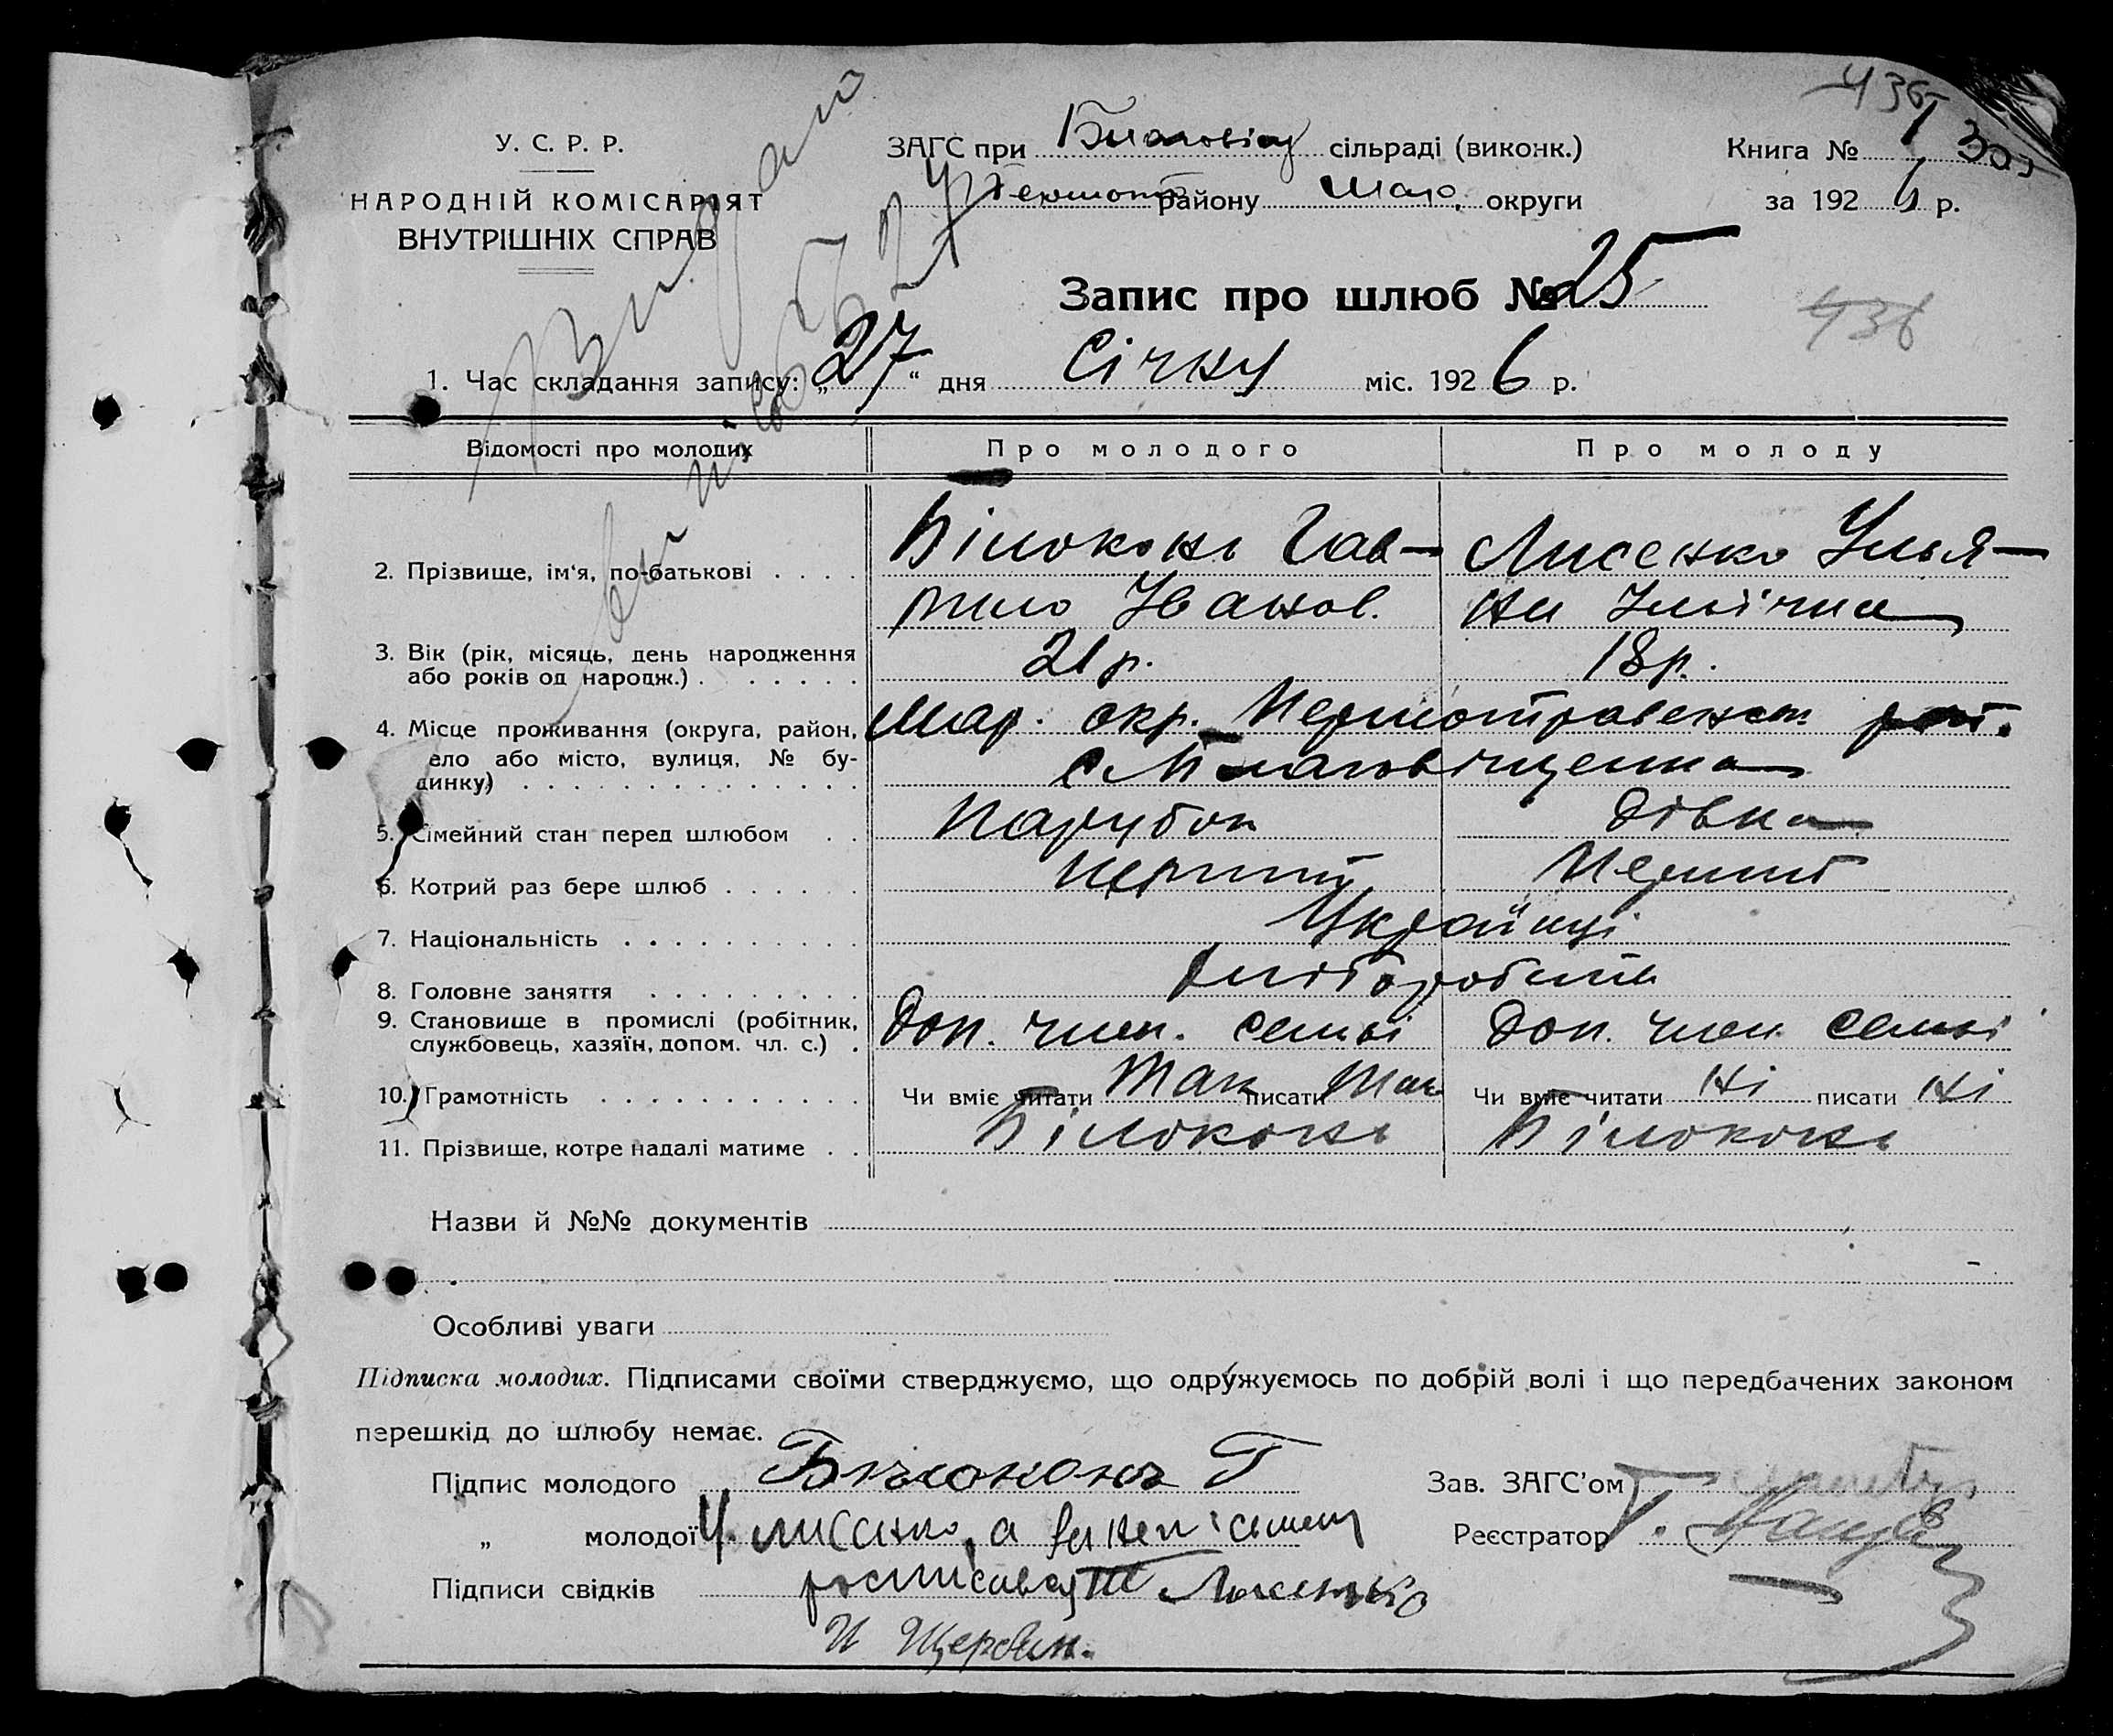 436
У. С. Р. Р.
ЗАГС при сільраді (виконк.)
Книга № 1
НАРОДНІЙ КОМІСАРІЯТ
району Мар. округи
за 192 6 р.
ВНУТРІШНІХ СПРАВ
Запис про шлюб № 25
436
1. Час складання запису: „27“ дня Січня міс. 1926 р.
Відомості про молодих
Про молодого
Про молоду
2. Прізвище, ім'я, по-батькові . . . .
Білоконь Гав-
рило Іванов.
Лисенко Улья-
на Іллічна
3. Вік (рік, місяць, день народження
або років од народж.) . . . . . .
21 р.
18 р.
4. Місце проживання (округа, район,
ело або місто, вулиця, № бу-
динку) . . . . . . . . . . . . . .
Мар. окр. Першотравенськ. рай.
с. Благовіщенка
5. Сімейний стан перед шлюбом . .
Парубок
Дівка
6. Котрий раз бере шлюб . . . . . .
Перший
Перший
7. Національність . . . . . . . . . .
Українці
8. Головне заняття . . . . . . . . .
Хлібороби
9. Становище в промислі (робітник,
службовець, хазяїн, допом. чл. с.) .
Доп. член. семьі
Доп. член. семьі
10. Грамотність . . . . . . . . . . .
Чи вміє читати Так писати Так
Чи вміє читати Ні писати Ні
11. Прізвище, котре надалі матиме . .
Білоконь
Білоконь
Назви й №№ документів
Особливі уваги
Підписка молодих. Підписами своїми стверджуємо, що одружуємось по добрій волі і що передбачених законом
перешкід до шлюбу немає.
Підпис молодого Білоконь Г
Зав. ЗАГС'ом
„ молодої У. Лисенко, а за
Реєстратор
Підписи свідків росписався Лисенко
И Щербин.